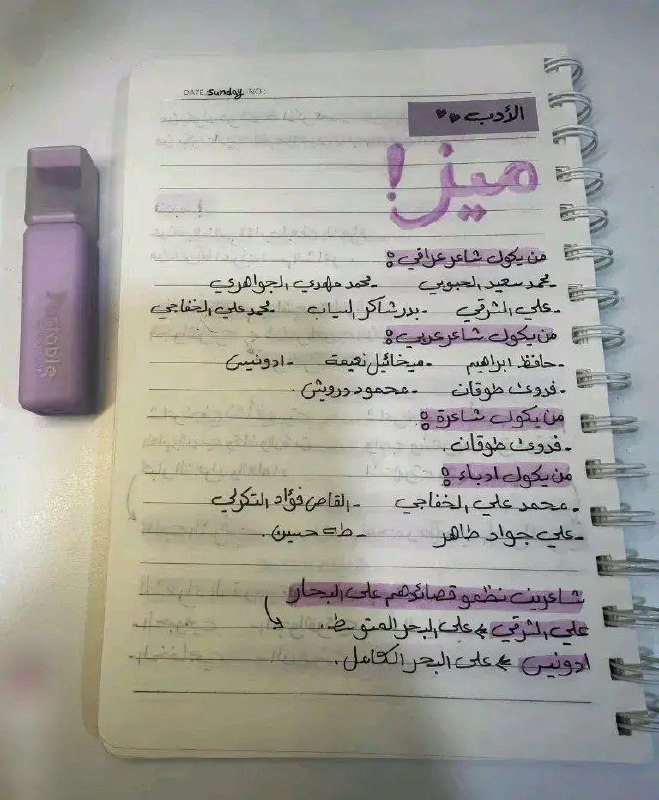 DATE: Sunday NO:
الأدب
ميز!
من يكول شاعر عراقي:
محمد سعيد الحبوبي - محمد مهدي الجواهري
- علي الشرقي - بدر شاكر السياب - محمد علي الخفاجي
من يكول شاعر عربي:
- حافظ ابراهيم - ميخائيل نعيمة - ادونيس
- فدوى طوقان - محمود درويش.
من يكول شاعرة:
- فدوى طوقان.
من يكول ادباء:
- محمد علي الخفاجي - القاص فؤاد التكرلي
- علي جواد طاهر - طه حسين.
شاعرين نظمو قصائدهم على البحار
علي الشرقي على البحر المتوسط.
ادونيس على البحر الكامل.